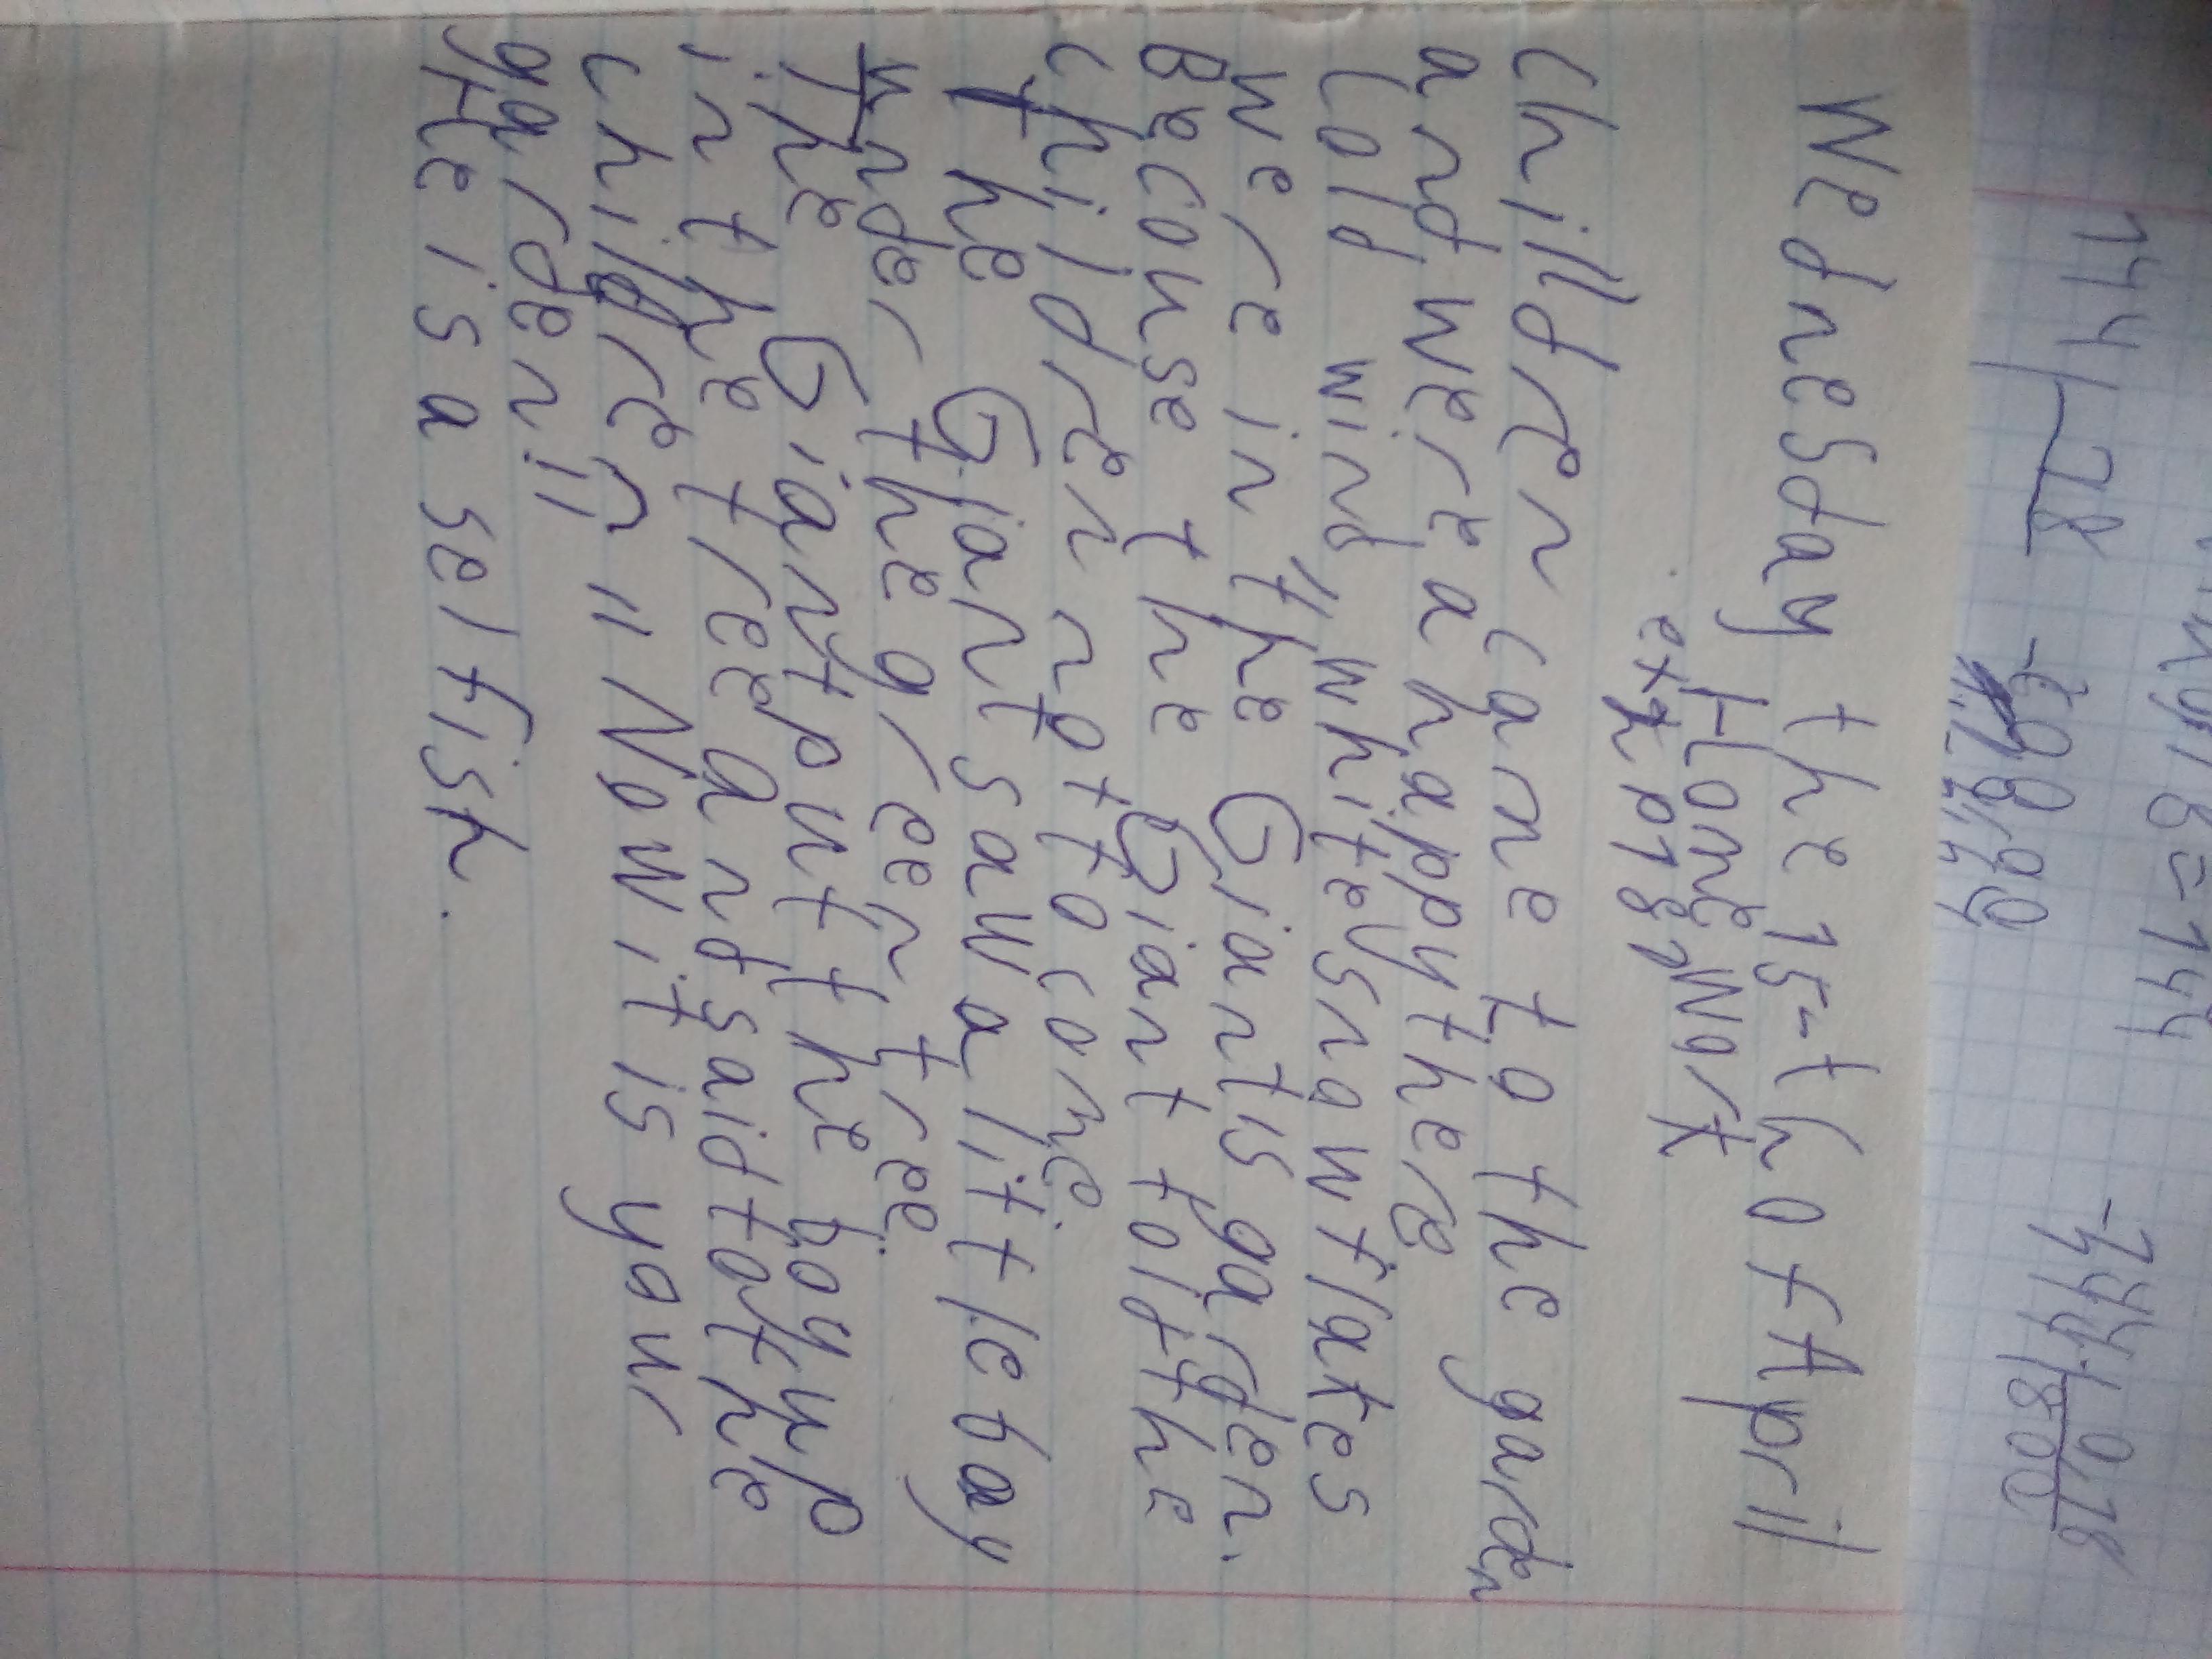 Wednesday the 15-th of April
Home Work
ex 2 p 81
Children came to the garden
and were a happy there
Cold wind, white snow flates
were in the Giant's garden.
Becouse the Giant told the
children not to come
the Giant saw a little boy
under the green tree
the Giant put the boy up
in the tree and said to the
children "Now it is your
garden"
He is a selfish.
144
78
0,18
800